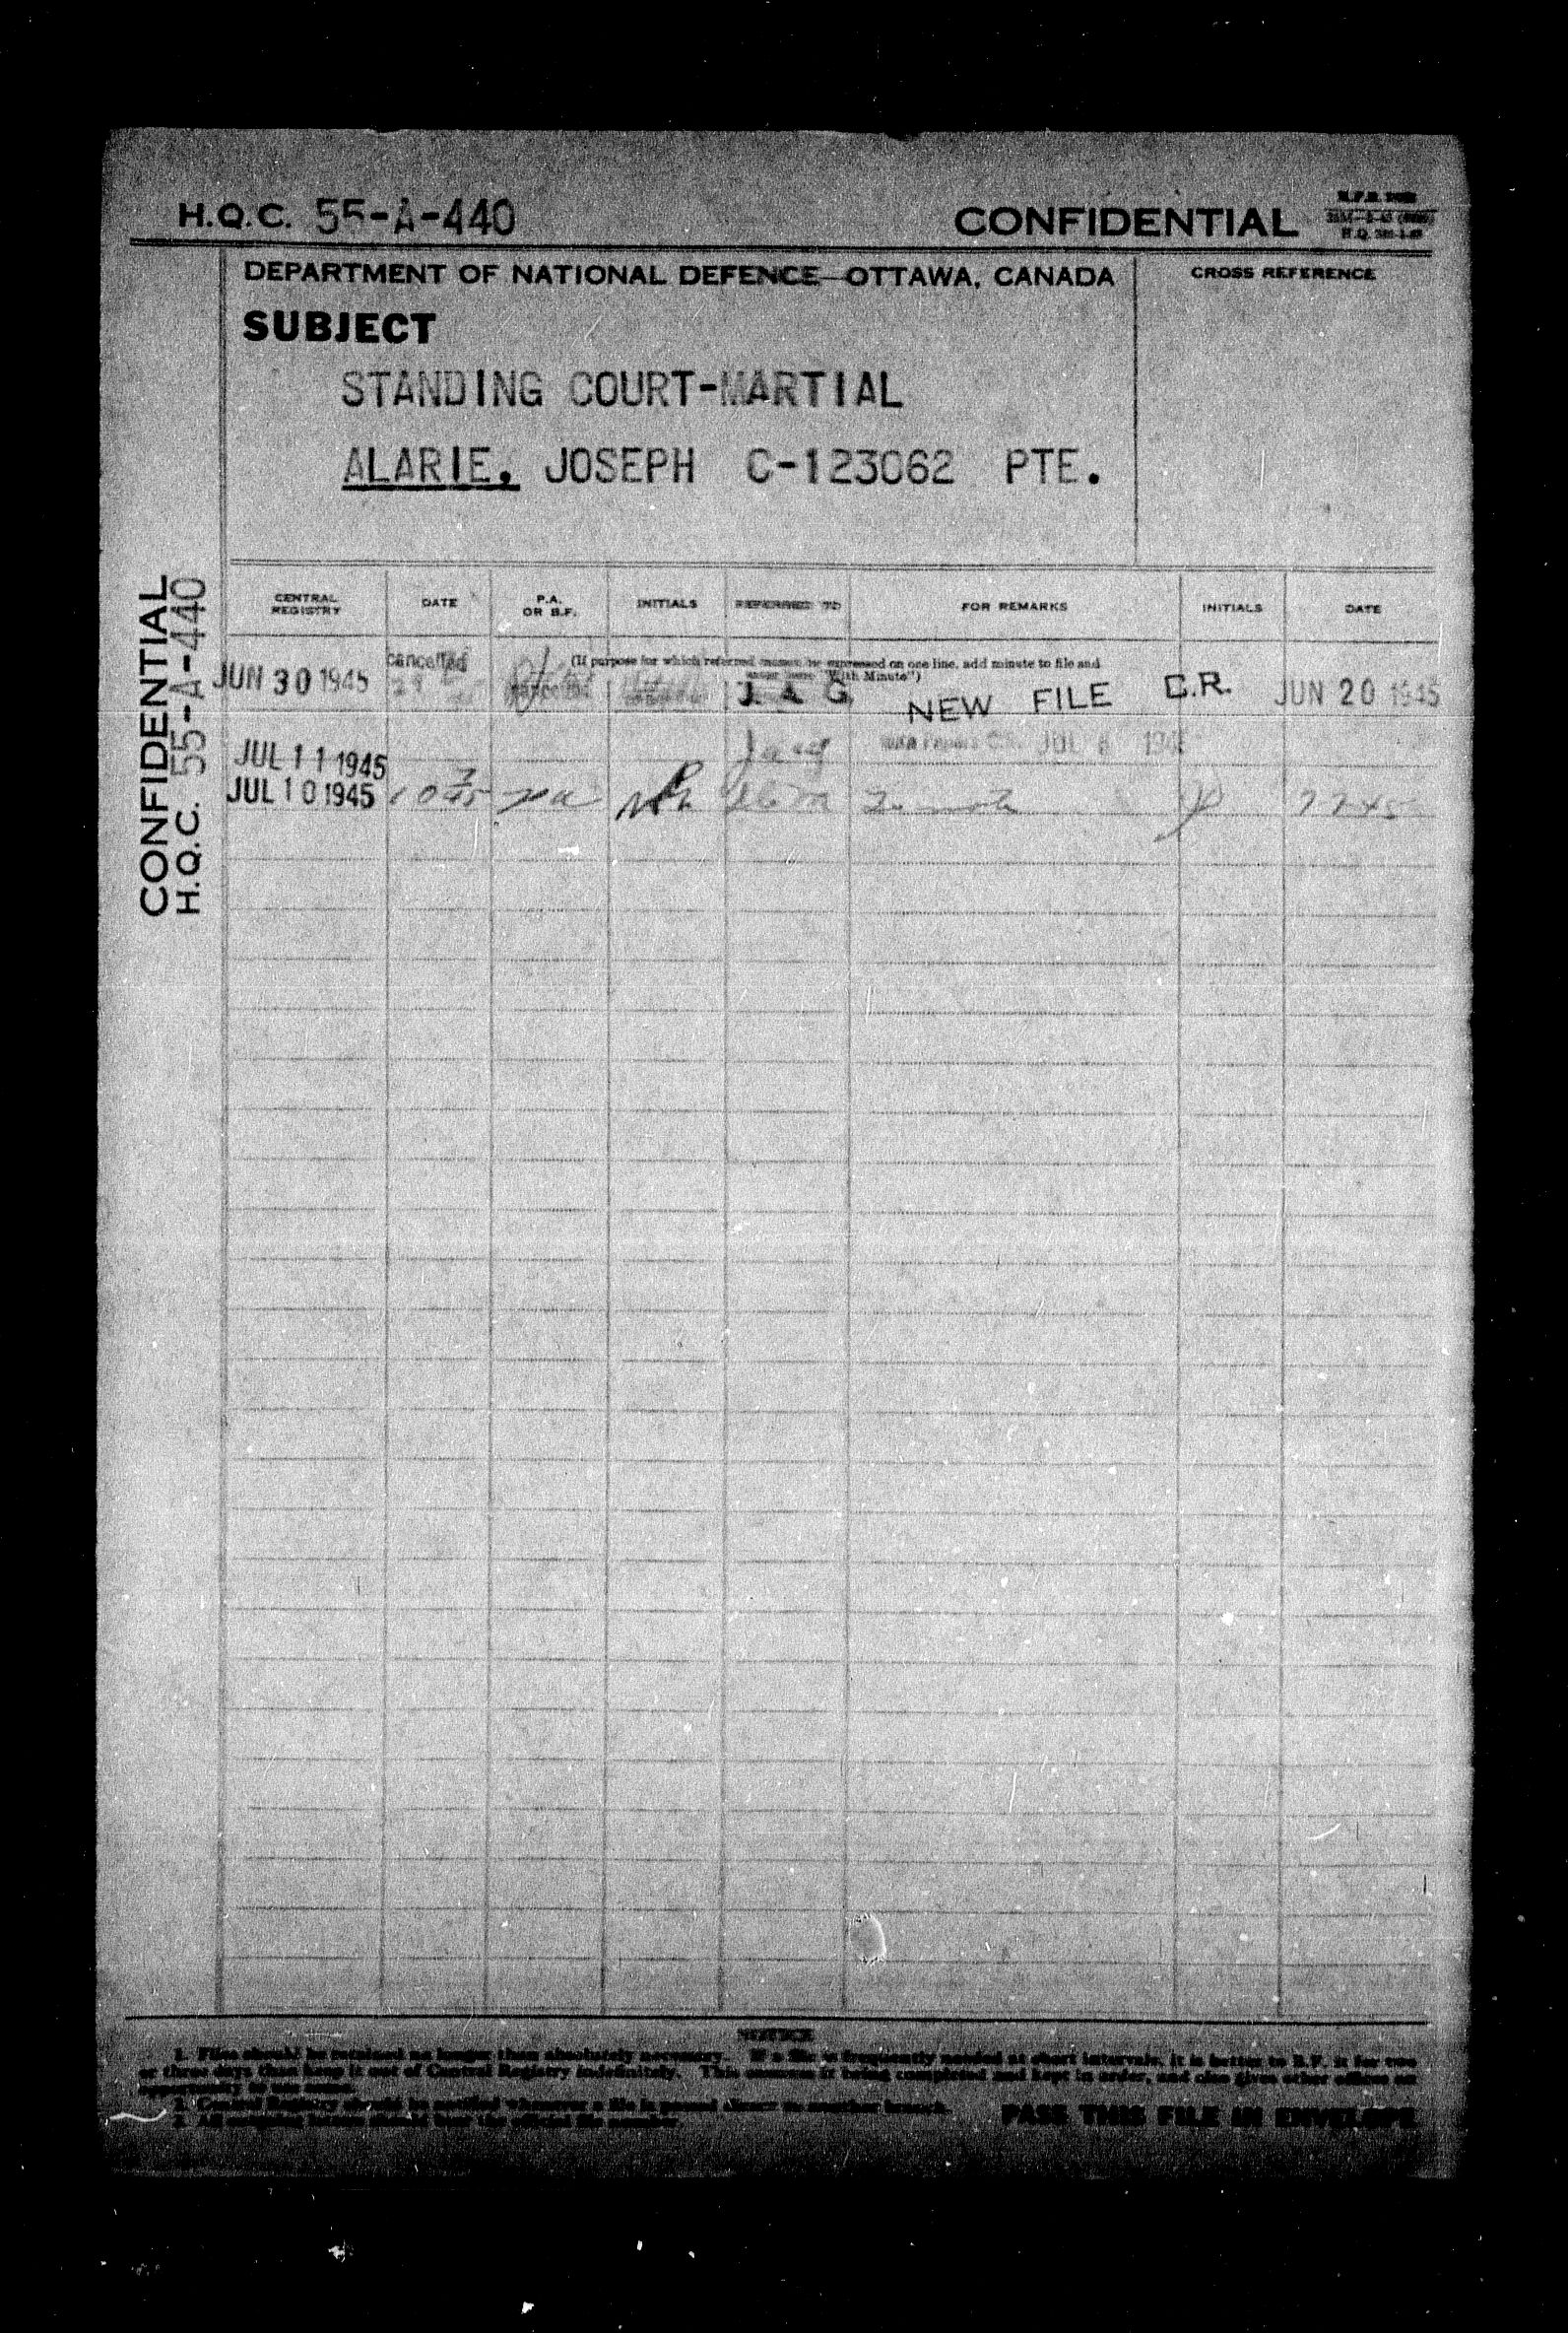 H.Q.C. 55-A-440
CONFIDENTIAL
DEPARTMENT OF NATIONAL DEFENCE—OTTAWA, CANADA
CROSS REFERENCE
SUBJECT
STANDING COURT-MARTIAL
ALARIE, JOSEPH C-123062 PTE.
CONFIDENTIAL
H.Q.C. 55-A-440
CENTRAL REGISTRY DATE P.A. OR B.F. INITIALS REFERRED TO FOR REMARKS INITIALS DATE
(If purpose for which referred cannot be expressed on one line, add minute to file and
"With Minute")
JUN 30 1945 cancelled J. A. G. NEW FILE C.R. JUN 20 1945
JUL 11 1945 Jag JUL
JUL 10 1945 To note 7 7 45
NOTICE
1. Files should be retained no longer than absolutely necessary. If a file is frequently needed at short intervals, it is better to B.F. it for two
or three days than keep it out of Central Registry indefinitely. This ensures it being completed and kept in order, and also gives other offices an
opportunity to use same.
2. Central Registry should be notified whenever a file is passed direct to another branch.
PASS THIS FILE IN ENVELOPE